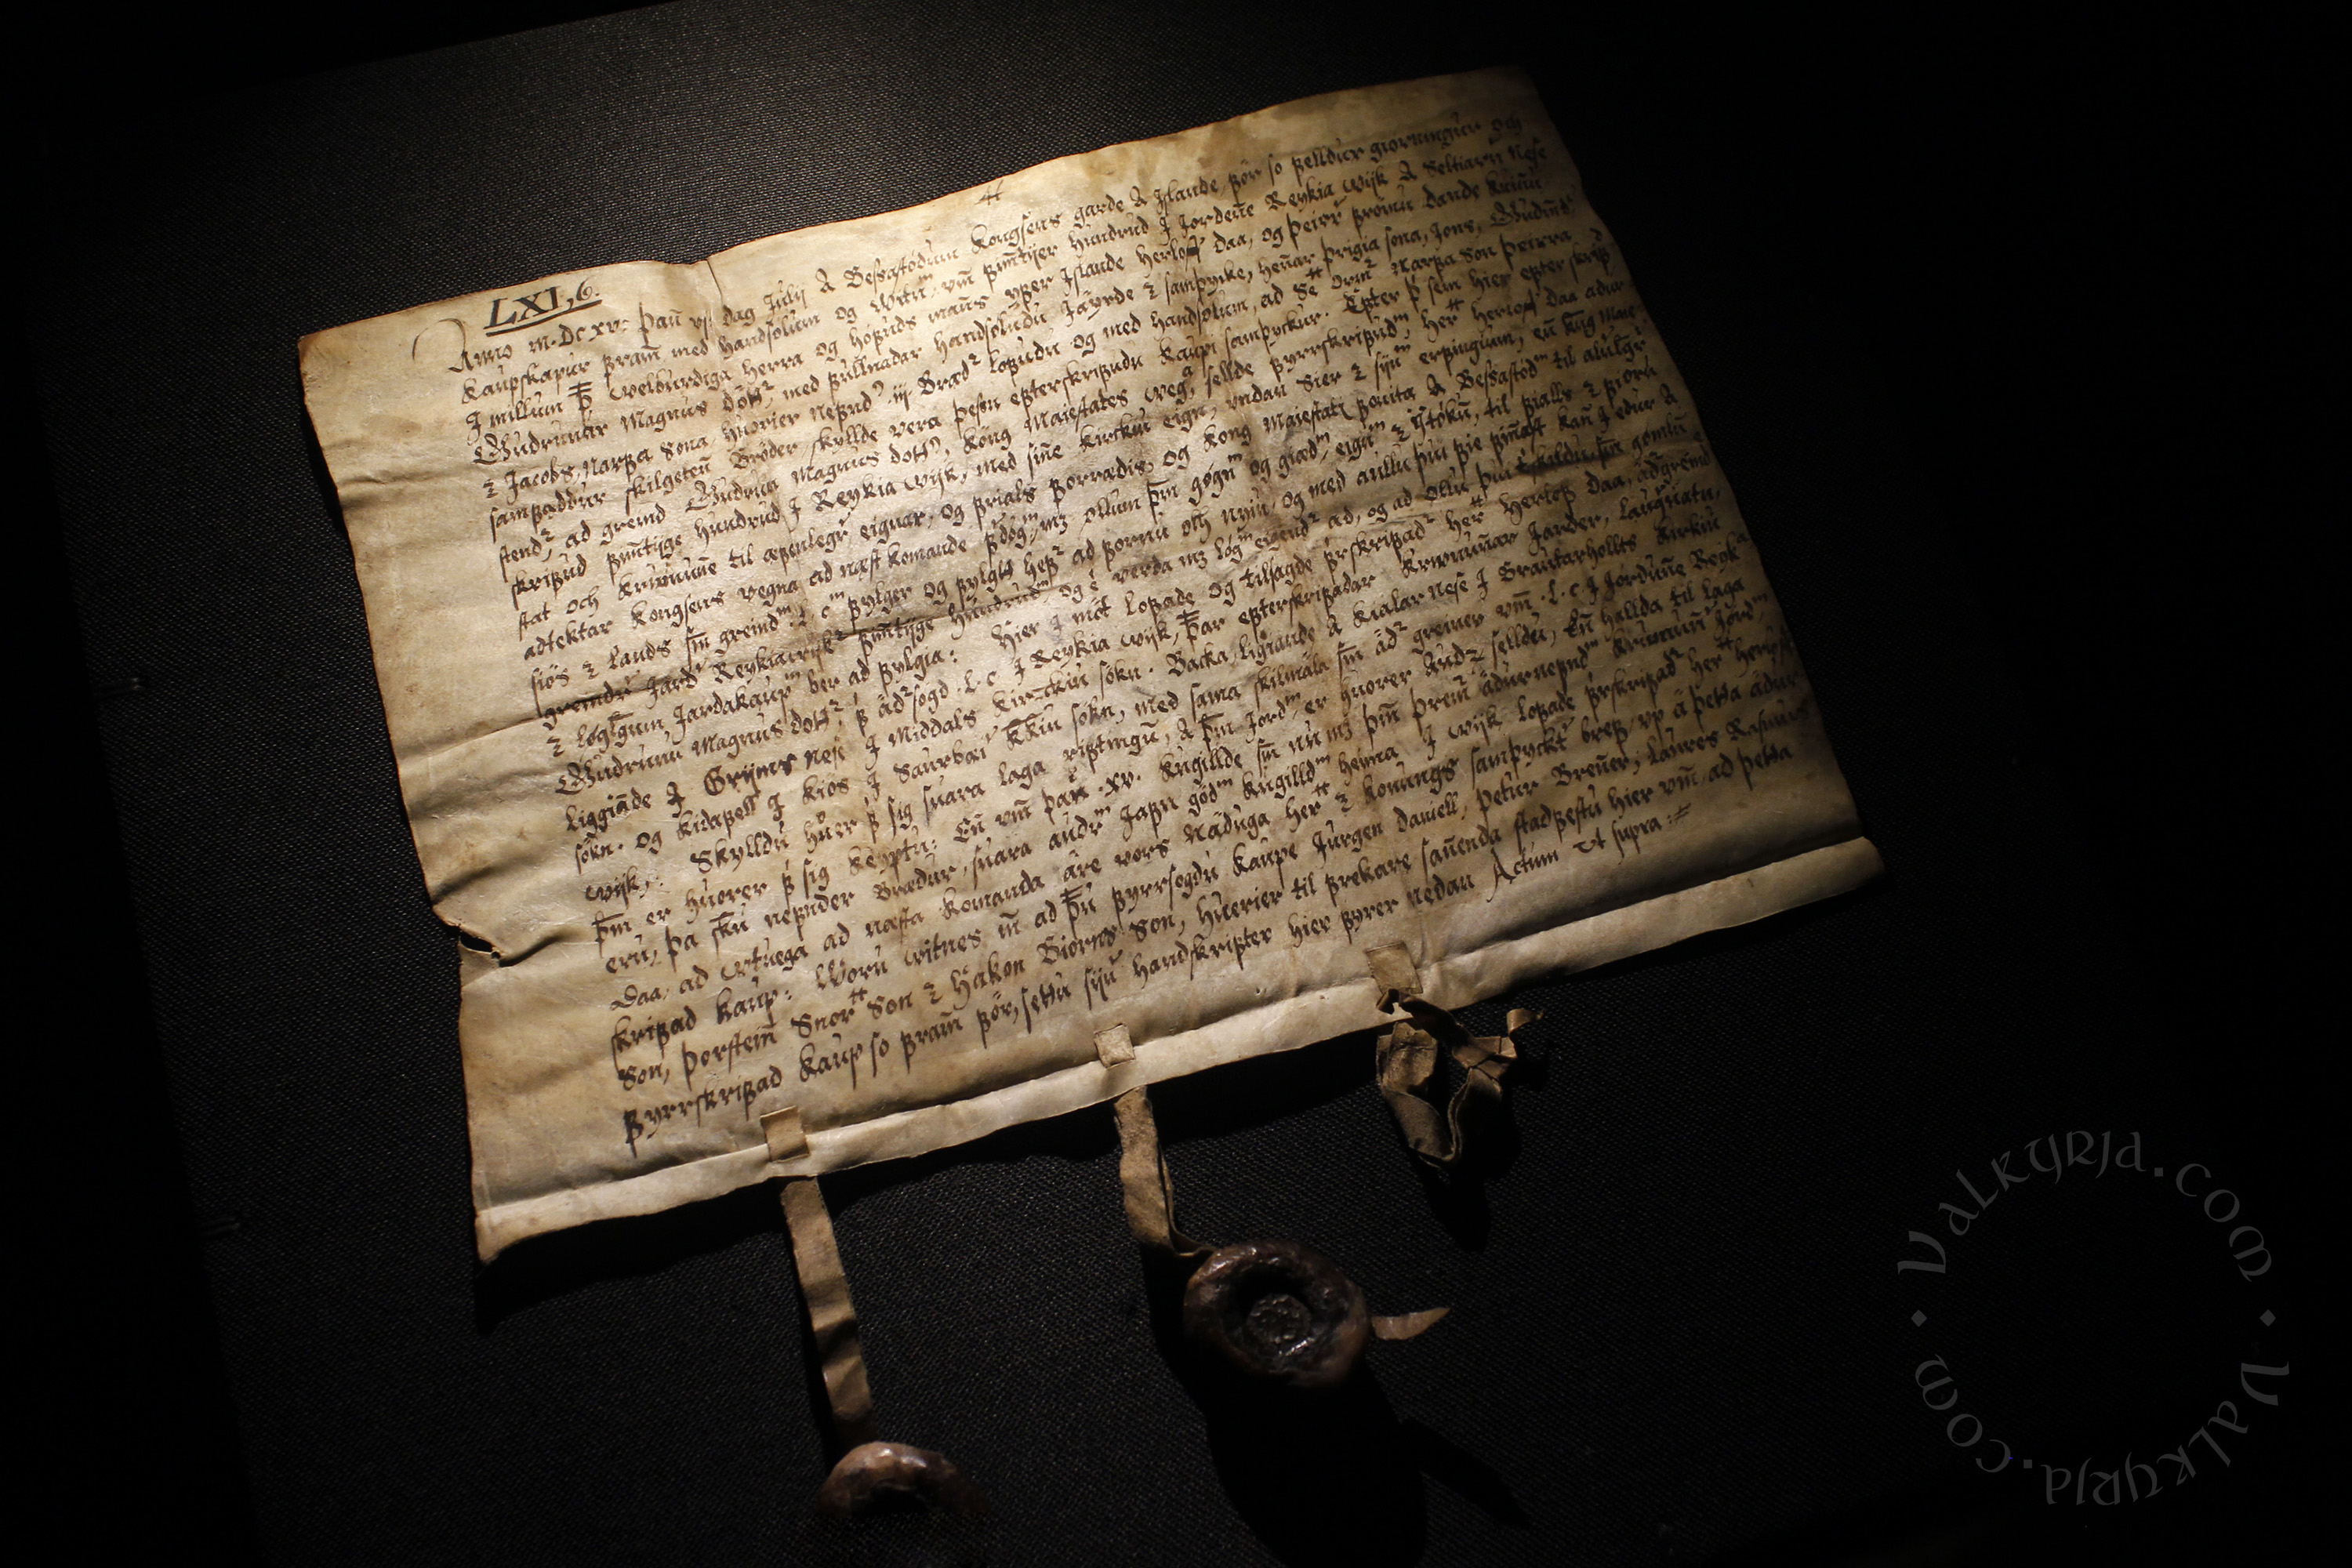 LXI,6.
Anno M.DC.xv: þañ vj: dag Julij A Bessastodum Kongsens garde A Islande, ꝼör so ꝼelldur giorningur och
Kaupskapur ꝼram̃ med handsolum og Witũ, vm̃ ꝼim̃tijer hundrud J Jordeñe Reykia wijk A Seltiarñ Nese
J millum welburdiga herra og hoꝼuds mañs yꝼer Islande Herloꝼ Daa, og þeirr ꝼromu Dande kuiñu
Gudrunar Magnus dott, med ꝼullnadar handsoludu Jäyrde ⁊ samþycke, heñar þrigia sona, Jons, Gudmd
⁊ Jacobs, Narꝼa Sona, huorier neꝼnd iij Bræd loꝼudu og med handsolum, ad Se Orm Narꝼa Son þeirra
samꝼaddur skilgeteñ Broder skyllde vera þeßu eꝼterskriꝼudu kaupi samþyckur. Epter þ sem hier eꝼter skriꝼ
stend, ad greind Gudrun Magnus dott, Kong Maiestates vegna, sellde ꝼyrrskriꝼud, her Herloꝼ Daa adur
skriꝼud ꝼim̃tijge hundrud J Reykia wijk, med siñe kirckiu eign, vndan Sier ⁊ sijn erꝼingium, eñ Kong Maie
stat och Krununne til æꝼenlegr eignar, og ꝼrials ꝼorrædis, og Kong Maiestat ꝼouita A Bessastod til
adtektar Kongsens vegna ad næst komande, ollum þm gøgn og giæd, eign ⁊ jtøku, til ꝼialls ⁊ ꝼioru
siös ⁊ lands sm greind L. c ꝼylger og ꝼylgt heꝼ ad ꝼornu och nyiu, og med aullu þui sie ꝼiñast kañ J edur A
greindr Jard Reykiawijk ꝼim̃tijge hundrud, og verda m̃ løg eigend ad, og ad ollu þui skildu sm gomlu
⁊ løglgum Jardakaup ber ad ꝼylgia: Hier J möt loꝼade og tilsagde ꝼrskriꝼad her Herloꝼ Daa, adgreind
Gudrunu Magnus dott, ꝼ äd sogd L. c J Reykia wijk, þar eꝼterskriꝼadar Krununar Jarder, Laugnatu,
liggiãde J Grijms nese J Middals kirckiu sokn. Backa, ligiande A Kialar nese J Brautarhollts kirkiu
sokn. og Kidaꝼell J Kios J Saurbæi kkiu sokn, med sama skilmala sm äd greiner vm̃ L. c J Jordune Reyk
wijk: Skylldu huer ꝼ sig suara laga riꝼtingu, A þm Jord, er huorer Andr selldu, Eñ hallda til laga
þm er huorer ꝼ sig keyptu: Eñ vm̃ þau xv. kugillde sm nu m̃ þm þrem ädurneꝼnd Krunun Jørd
eru, þa sku neꝼnder Brædur suara audr Jaꝼn göd kugilld heima J wijk loꝼade ꝼrskriꝼad her Herloꝼ
Daa, ad vtuega ad næsta komanda äre vors Näduga her ⁊ konungs samþyckt breꝼ, vp ä þetta ädur
skriꝼad kaup: Woru witnes m̃ ad þu ꝼyrrsogdu kaupe Jurgen Daniell, Petur Breñer, Laures Rasmus
Son, þorsteiñ Snor Son ⁊ Hakon Biorns Son, huerier til ꝼrekare sañenda stadꝼestu hier vm̃, ad þetta
ꝼyrrskriꝼad kaup so ꝼram̃ ꝼör, settu sijn handskriꝼter hier ꝼyrer nedan Actum Vt supra:
Valkyrja.com · Valkyrja.com ·